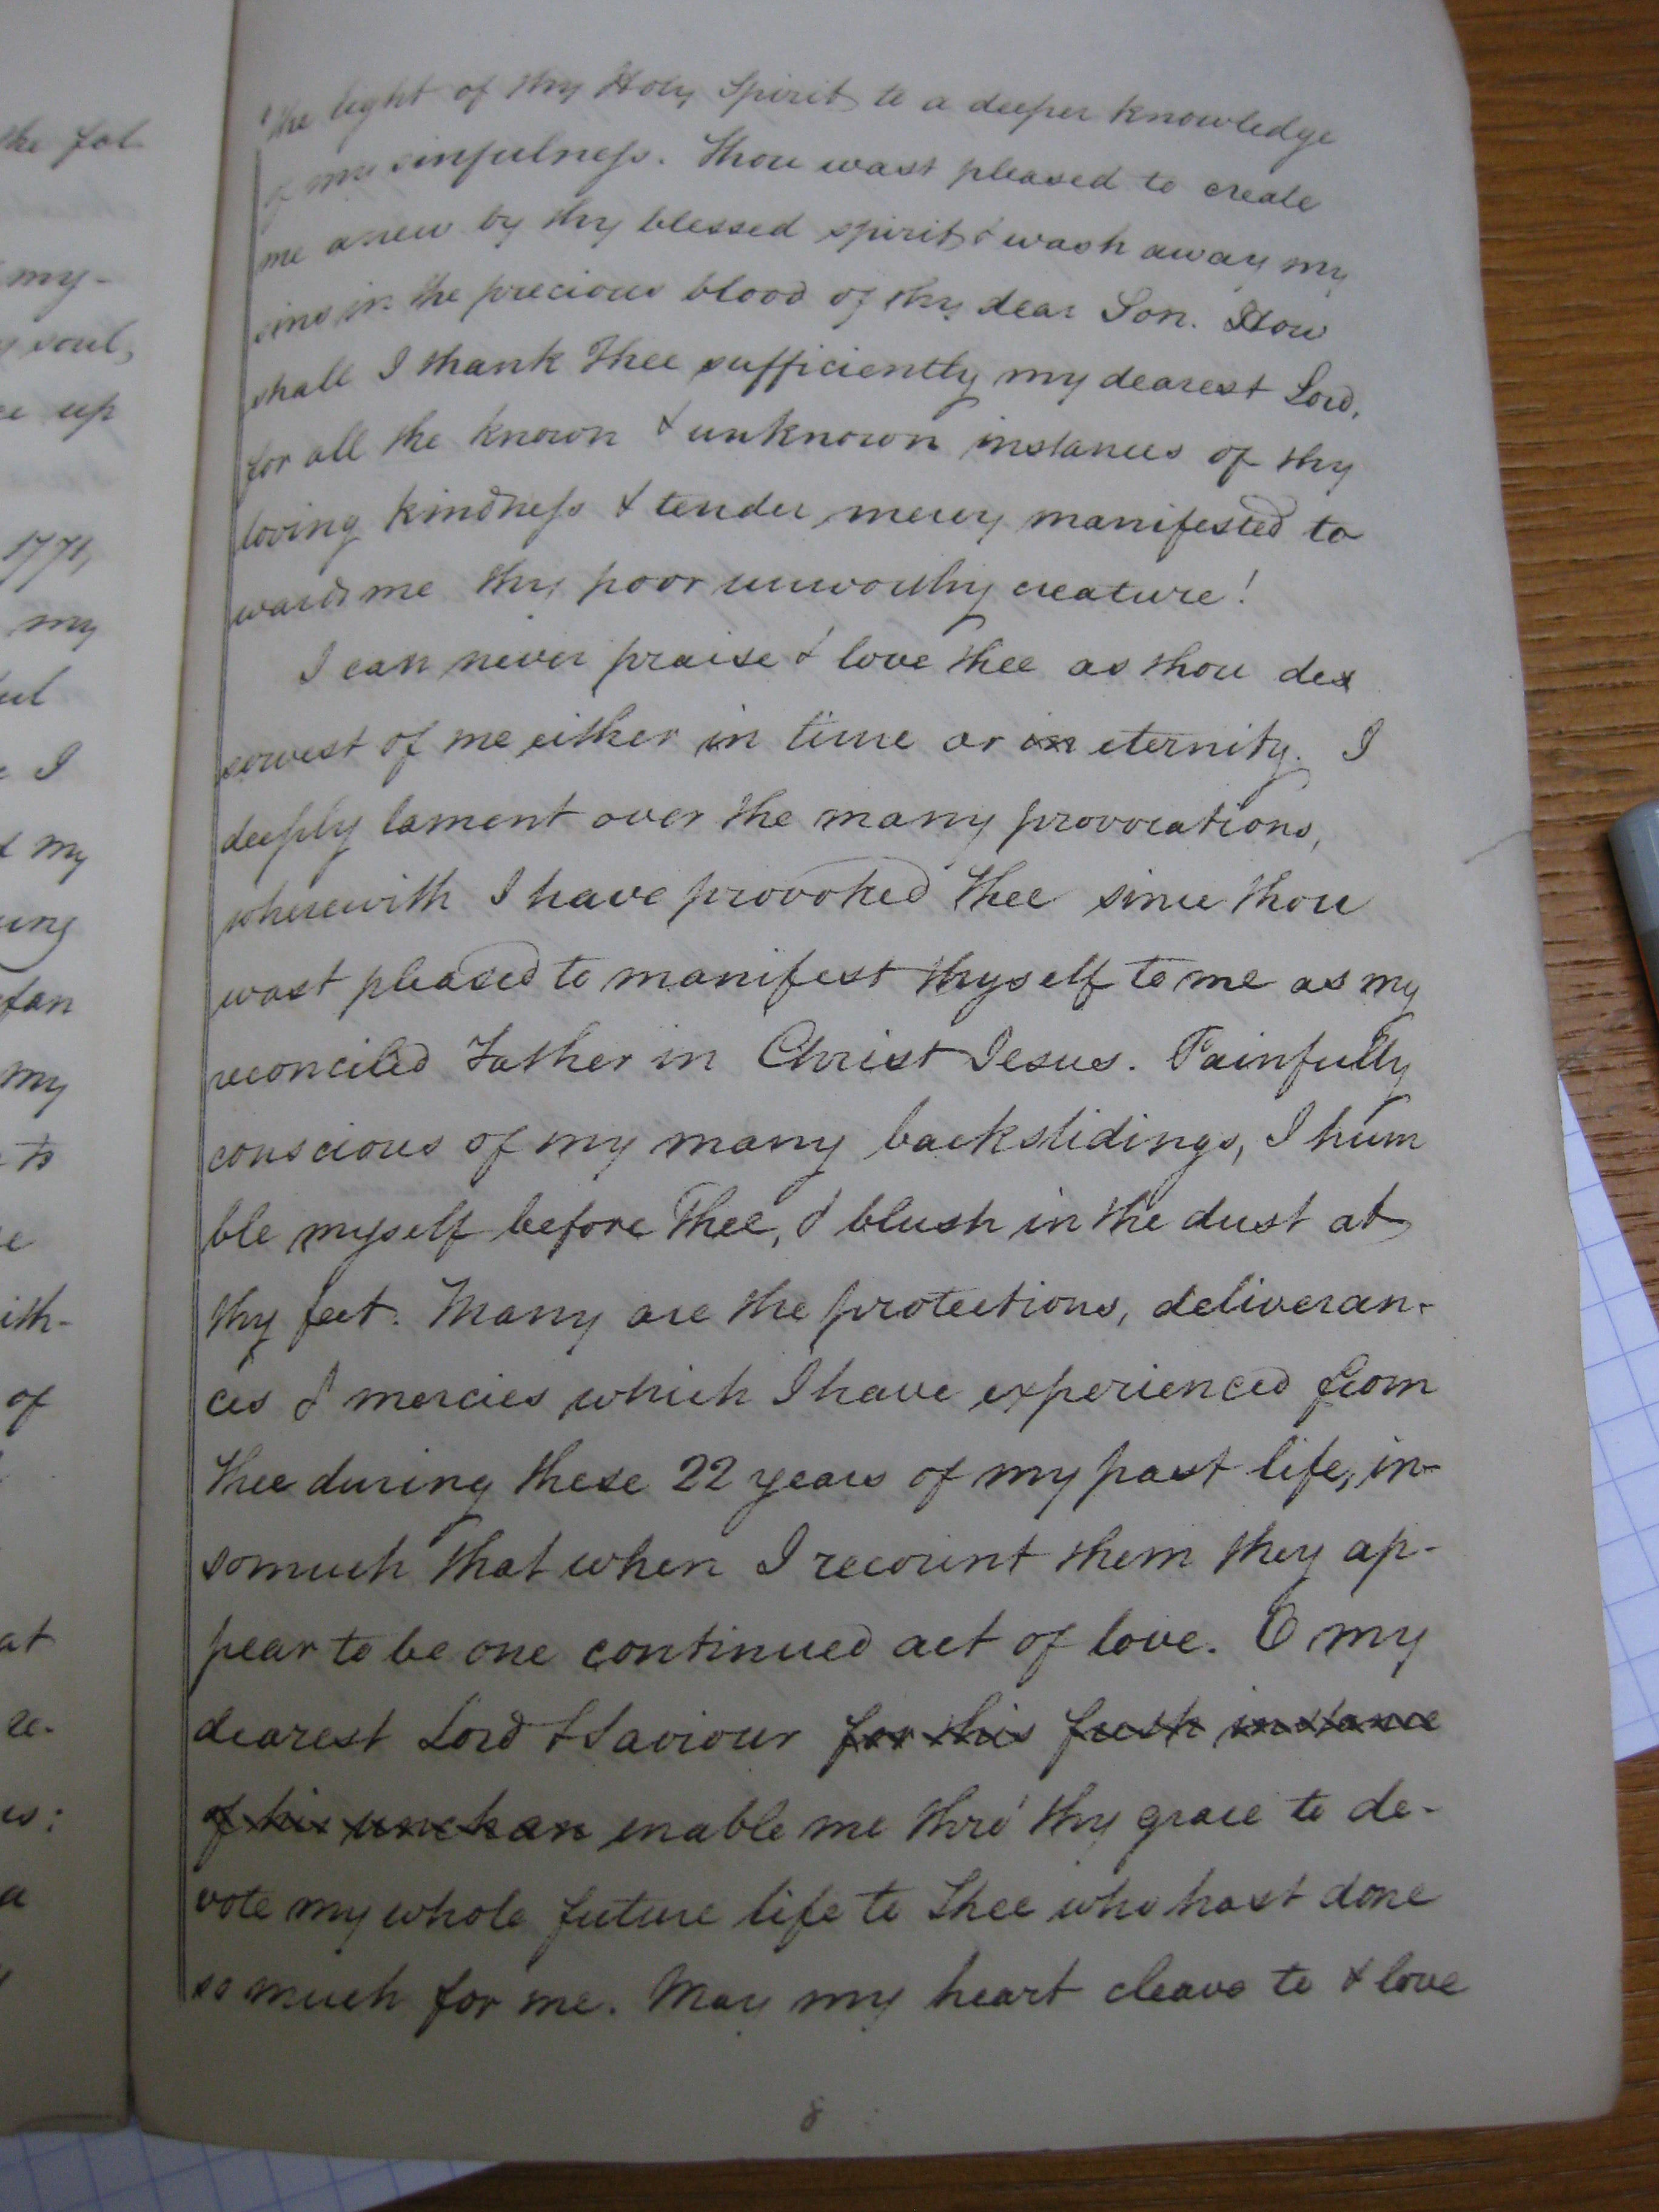 the fol-
my-
soul,
up
1771,
my
I
my
my
to
ith-
of
at
re-
a
the light of thy Holy Spirit to a deeper knowledge
of my sinfulness. Thou wast pleased to create
me anew by thy blessed spirit & wash away my
sins in the precious blood of thy dear Son. How
shall I thank Thee sufficiently my dearest Lord,
for all the known & unknown instances of thy
loving kindness & tender mercy manifested to
wards me thy poor unworthy creature!
I can never praise & love thee as thou des
servest of me either in time or in eternity. I
deeply lament over the many provocations,
wherewith I have provoked thee since thou
wast pleased to manifest thyself to me as my
reconciled Father in Christ Jesus. Painfully
conscious of my many backslidings, I hum
ble myself before Thee, & blush in the dust at
thy feet. Many are the protections, deliveran-
ces & mercies which I have experienced from
thee during these 22 years of my past life, in-
somuch that when I recount them they ap-
pear to be one continued act of love. O my
dearest Lord & Saviour for this fresh instance
of his unchan enable me thro' thy grace to de-
vote my whole future life to Thee who hast done
so much for me. May my heart cleave to & love
8